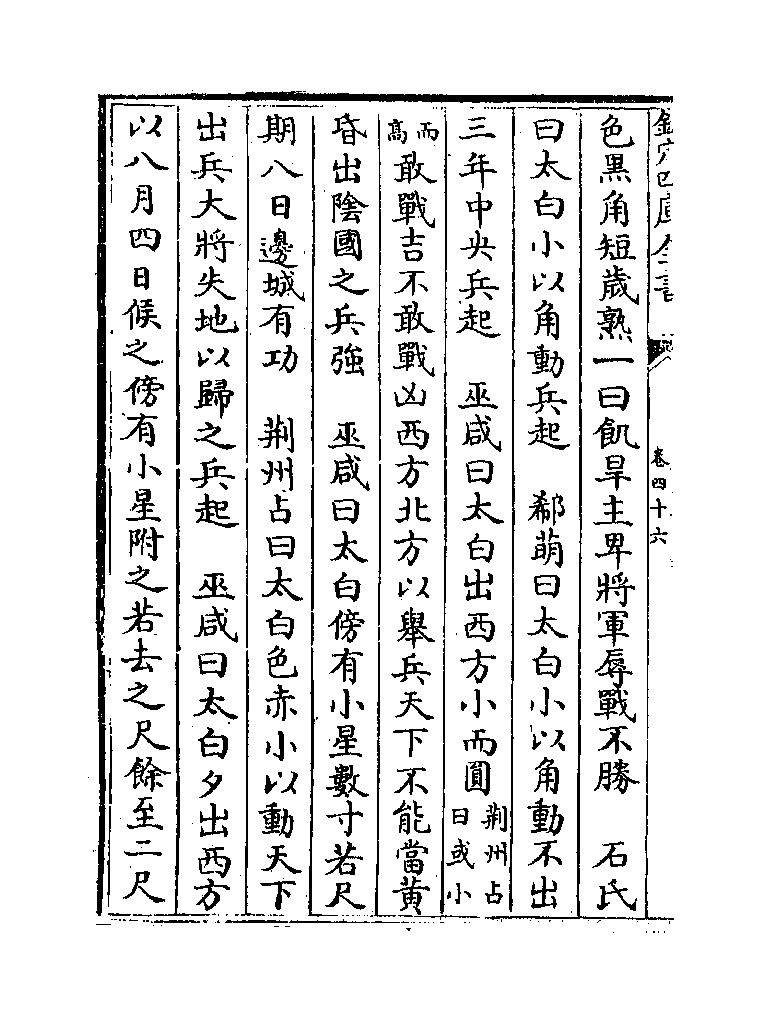 欽定四庫全書
卷四十六
色黑角短歲熟一曰飢旱主卑將軍辱戰不勝　石氏
曰太白小以角動兵起　郗萌曰太白小以角動不出
三年中央兵起　巫咸曰太白出西方小而圓荆州占曰或小
而高敢戰吉不敢戰凶西方北方以舉兵天下不能當黃
昏出陰國之兵強　巫咸曰太白傍有小星數寸若尺
期八日邊城有功　荆州占曰太白色赤小以動天下
出兵大將失地以歸之兵起　巫咸曰太白夕出西方
以八月四日候之傍有小星附之若去之尺餘至二尺